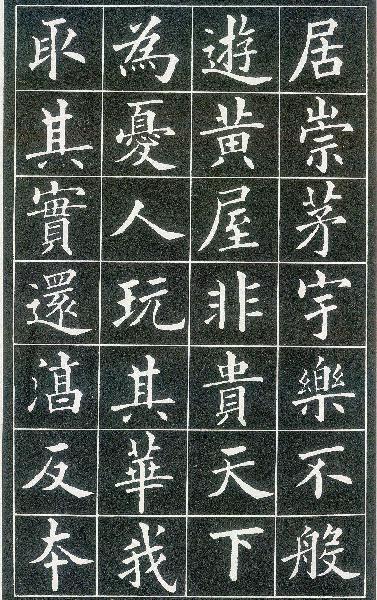 居崇茅宇樂不般
遊黃屋非貴天下
為憂人玩其華我
取其實還淳反本